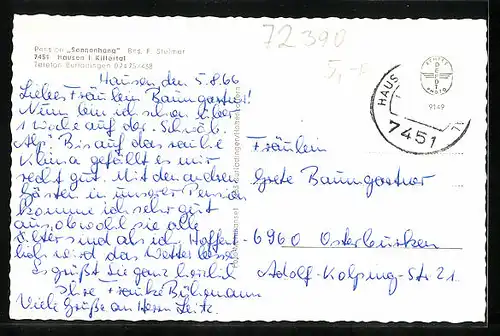 Pension „Sonnenhang" Bes. F. Steimer
7451 Hausen i. Killertal
Telefon Burladingen 07475/438
72390
5,-
Hausen den 5.8.66
Liebes Fräulein Baumgartner!
Nun bin ich schon über
1 Woche auf der Schwäb.
Alp. Bis auf das rauhe
Klima gefällt es mir
recht gut. Mit den andren
Gästen in unserer Pension
komme ich sehr gut
aus, obwohl sie alle
älter sind als ich. Hoffent-
lich wird das Wetter besser
Es grüßt Sie ganz herzlich
Ihre Frauke Bühemann
Viele Grüße an Herrn Leitz.
HAUS
7451
9149
Fräulein
Grete Baumgartner
6960 Osterburken
Adolf-Kolping-Str 21